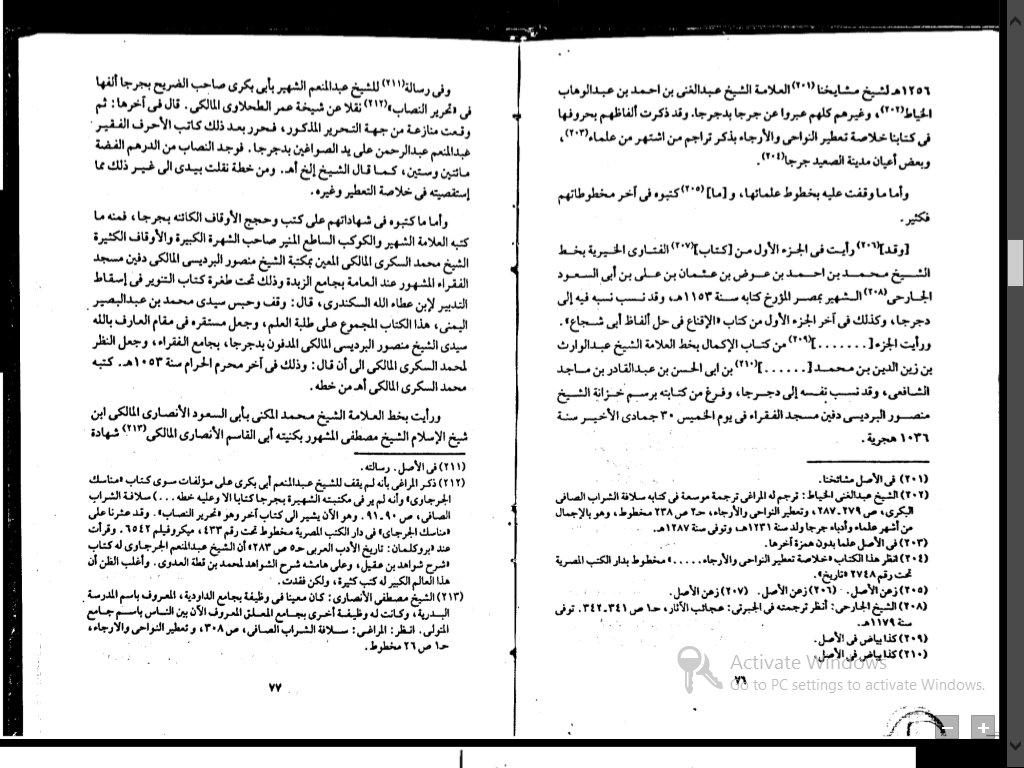 ١٢٥٦هـ لشيخ مشايخنا(٢٠١) العلامة الشيخ عبدالغنى بن احمد بن عبدالوهاب
الخياط(٢٠٢)، وغيرهم كلهم عبروا عن جرجا بدجرجا. وقد ذكرت ألفاظهم بحروفها
فى كتابنا خلاصة تعطير النواحى والأرجاء بذكر تراجم من اشتهر من علماء(٢٠٣)،
وبعض أعيان مدينة الصعيد جرجا(٢٠٤).
وأما ما وقفت عليه بخطوط علمائها، و[ما](٢٠٥) كتبوه فى آخر مخطوطاتهم
فكثير.
[وقد](٢٠٦) رأيت فى الجزء الأول من [كتاب](٢٠٧) الفتاوى الخيرية بخط
الشيخ محمد بن احمد بن عوض بن عشمان بن على بن أبى السعود
الجارحى(٢٠٨) الشهير بمصر المؤرخ كتابه سنة ١١٥٣هـ، وقد نسب نسبه فيه إلى
دجرجا، وكذلك فى آخر الجزء الأول من كتاب «الإقناع فى حل ألفاظ أبى شجاع».
ورأيت الجزء [.......](٢٠٩) من كتاب الإكمال بخط العلامة الشيخ عبدالوارث
بن زين الدين بن محمد [......](٢١٠) بن ابى الحسن بن عبدالقادر بن ماجد
الشافعى، وقد نسب نفسه إلى دجرجا، وفرغ من كتابته برسم خزانة الشيخ
منصور البرديسى دفين مسجد الفقراء فى يوم الخميس ٣٠ جمادى الأخير سنة
١٠٣٦ هجرية.
(٢٠١) فى الأصل مشائخنا.
(٢٠٢) الشيخ عبدالغنى الخياط: ترجم له المراغى ترجمة موسعة فى كتابه سلافة الشراب الصافى
البكرى، ص ٢٧٩ـ٢٨٧، وتعطير النواحى والأرجاء، حـ٢ ص ٢٣٨ مخطوط، وهو بالإجمال
من أشهر علماء وأدباء جرجا ولد سنة ١٢٣١هـ، وتوفى سنة ١٢٨٧هـ.
(٢٠٣) فى الأصل علما بدون همزة آخرها.
(٢٠٤) انظر هذا الكتاب «خلاصة تعطير النواحى والأرجاء.....» مخطوط بدار الكتب المصرية
تحت رقم ٢٧٤٨ «تاريخ».
(٢٠٥) زعن الأصل. (٢٠٦) زعن الأصل. (٢٠٧) زعن الأصل.
(٢٠٨) الشيخ الجارحى: أنظر ترجمته فى الجبرتى: عجائب الآثار، حـ١ ص ٣٤١ـ٣٤٢. توفى
سنة ١١٧٩هـ.
(٢٠٩) كذا بياض فى الأصل.
(٢١٠) كذا بياض فى الأصل.
٧٦
وفى رسالة(٢١١) للشيخ عبدالمنعم الشهير بأبى بكرى صاحب الضريح بجرجا ألفها
فى «تحرير النصاب»(٢١٢) نقلا عن شيخة عمر الطحلاوى المالكى. قال فى آخرها: ثم
وقعت منازعة من جهة التحرير المذكور، فحرر بعد ذلك كاتب الأحرف الفقير
عبدالمنعم عبدالرحمن على يد الصواغين بدجرجا. فوجد النصاب من الدرهم الفضة
مائتين وستين، كما قال الشيخ إلخ أهـ. ومن خطة نقلت بيدى الى غير ذلك مما
إستقصيته فى خلاصة التعطير وغيره.
وأما ما كتبوه فى شهاداتهم على كتب وحجج الأوقاف الكائنه بجرجا، فمنه ما
كتبه العلامة الشهير والكوكب الساطع المنير صاحب الشهرة الكبيرة والأوقاف الكثيرة
الشيخ محمد السكرى المالكى المعين بمكتبة الشيخ منصور البرديسى المالكى دفين مسجد
الفقراء المشهور عند العامة بجامع الزبدة وذلك تحت طغرة كتاب التنوير فى إسقاط
التدبير لإبن عطاء الله السكندرى، قال: وقف وحبس سيدى محمد بن عبدالبصير
اليمنى، هذا الكتاب المجموع على طلبة العلم، وجعل مستقره فى مقام العارف بالله
سيدى الشيخ منصور البرديسى المالكى المدفون بدجرجا، بجامع الفقراء، وجعل النظر
لمحمد السكرى المالكى الى أن قال: وذلك فى آخر محرم الحرام سنة ١٠٥٣هـ. كتبه
محمد السكرى المالكى أهـ من خطه.
ورأيت بخط العلامة الشيخ محمد المكنى بأبى السعود الأنصارى المالكى ابن
شيخ الإسلام الشيخ مصطفى المشهور بكنيته أبى القاسم الأنصارى المالكى(٢١٣) شهادة
(٢١١) فى الأصل. رسالته.
(٢١٢) ذكر المراغى بأنه لم يقف للشيخ عبدالمنعم أبى بكرى على مؤلفات سوى كتاب «مناسك
الجرجاوى» وأنه لم ير فى مكتبته الشهيرة بجرجا كتابا الا وعليه خطه...) سلافة الشراب
الصافى، ص ٩٠ـ٩١. وهو الآن يشير الى كتاب آخر وهو «تحرير النصاب». وقد عثرنا على
«مناسك الجرجاى» فى دار الكتب المصرية مخطوط تحت رقم ٤٣٣، ميكروفيلم ٦٥٤٢. وقرأت
عند «بروكلمان: تاريخ الأدب العربى حـ٥ ص ٢٨٣» أن الشيخ عبدالمنعم الجرجاوى له كتاب
«شرح شواهد بن عقيل، وعلى هامشه شرح الشواهد لمحمد بن قطة العدوى. وأغلب الظن أن
هذا العالم الكبير له كتب كثيرة، ولكن فقدت.
(٢١٣) الشيخ مصطفى الأنصارى: كان معينا فى وظيفة بجامع الداودية، المعروف باسم المدرسة
البدرية، وكانت له وظيفة أخرى بجامع المعلق المعروف الآن بين الناس باسم جامع
المتولى. انظر: المراغى: سلافة الشراب الصافى، ص ٣٠٨، وتعطير النواحى والارجاء،
حـ١ ص ٢٦ مخطوط.
٧٧
Activate Windows
Go to PC settings to activate Windows.